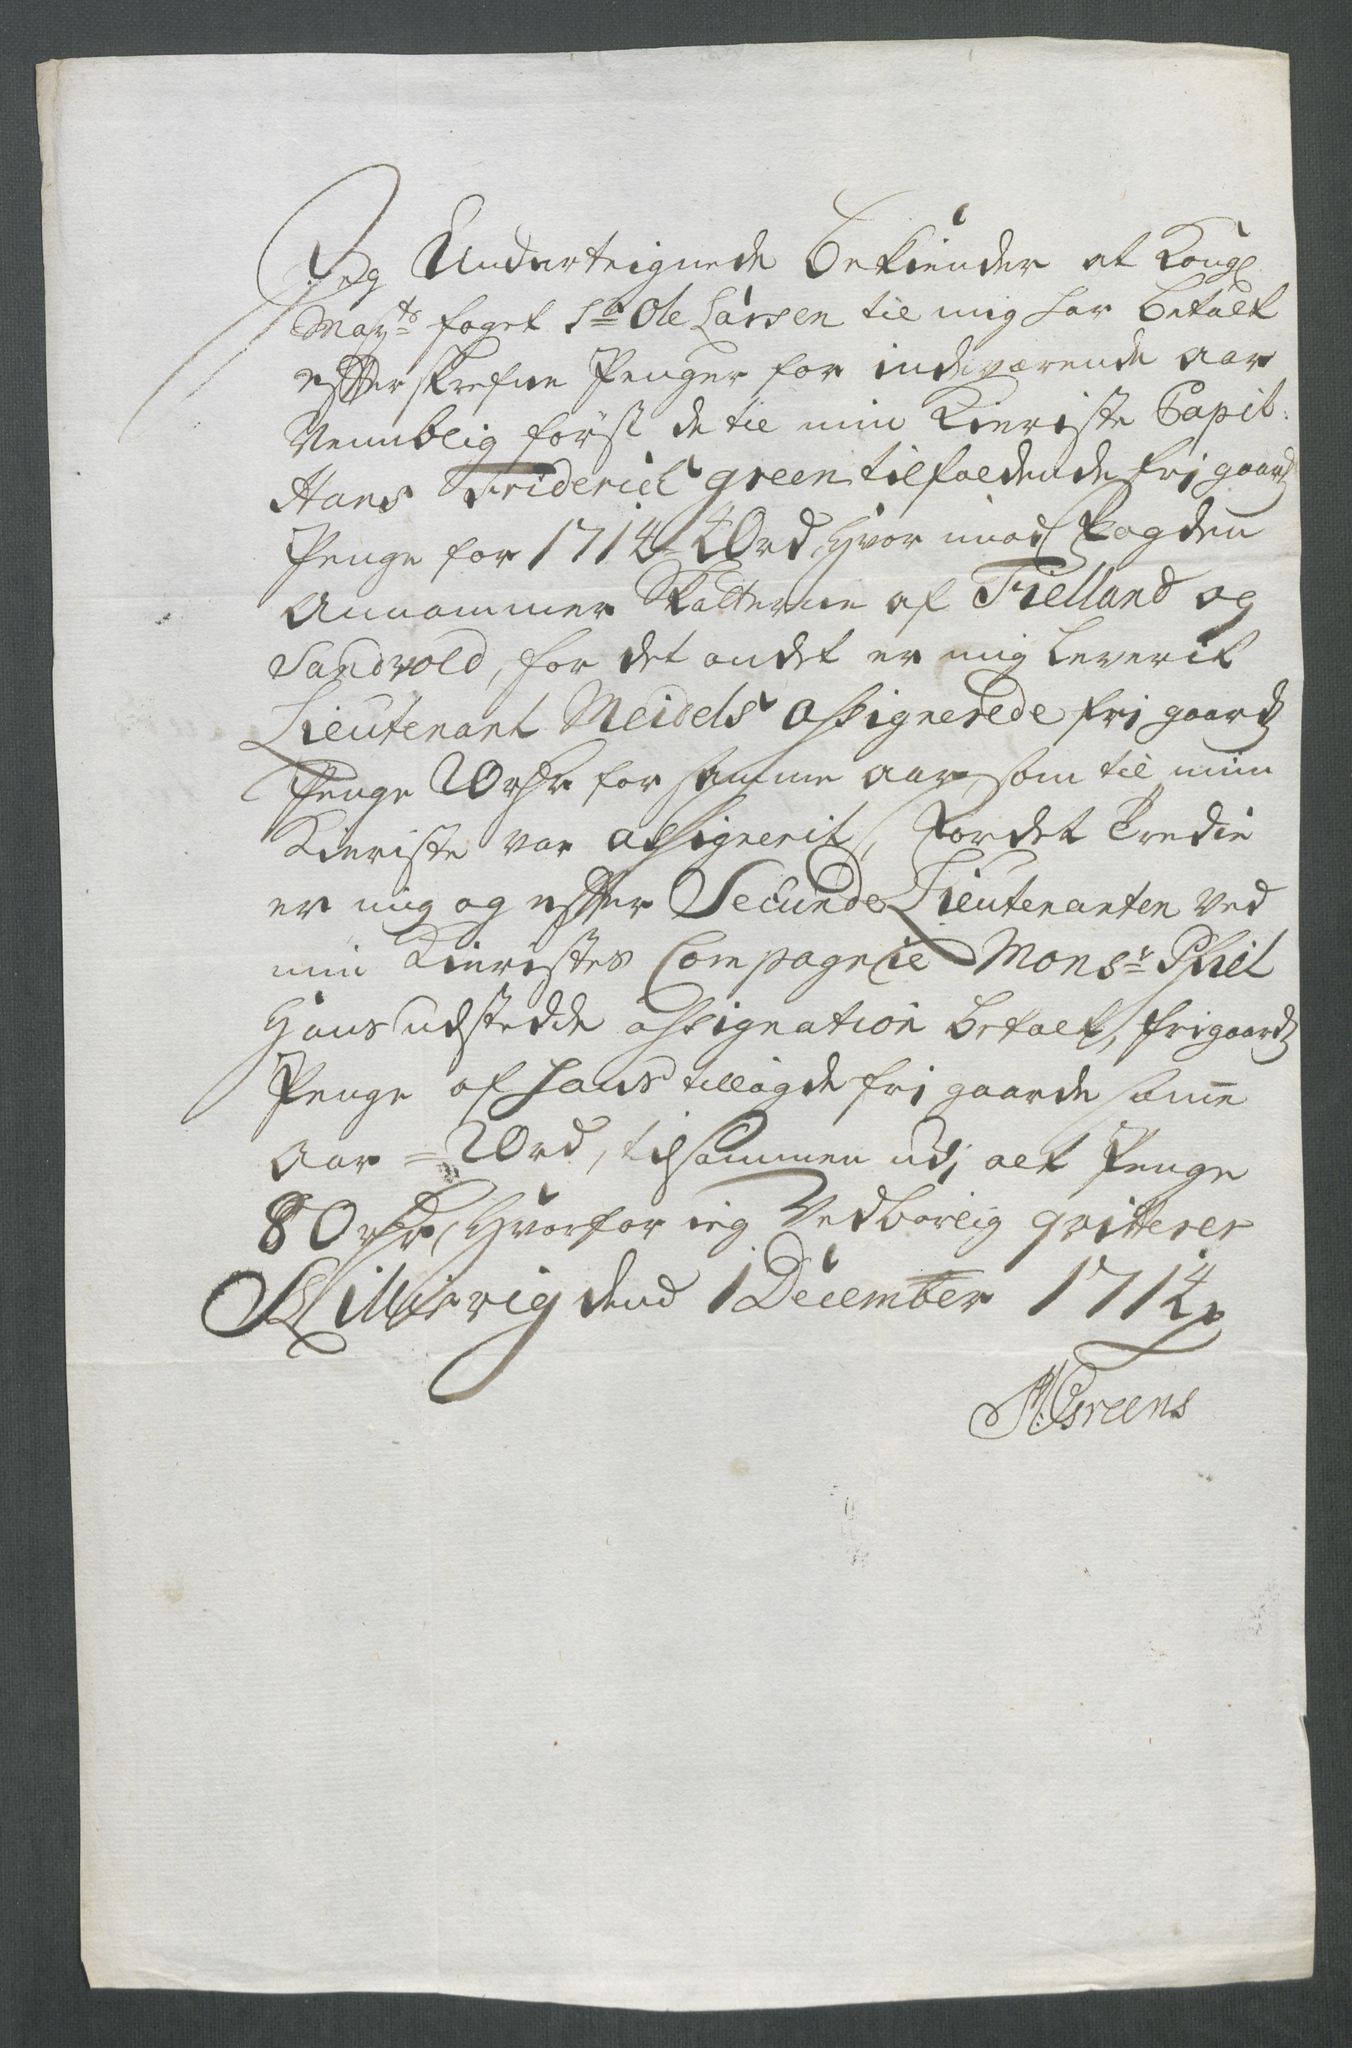 Jeg Underteignede bekiender at Kongl.
Mayts foget Sr Ole Larsen til mig har betalt
effterskrefne Penger for indeværende aar
Nemblig først de til min Kieriste Capit.
Hans Friderich green tilfaldende fri gaards
Penge for 1714 = 40 rd, hvor imod fogden
Annammer Skatterne af Fielland og
Sandvold, for det andet er mig leverit
Lieutenant Meidels assignerede fri gaards
Penge 20 rdr for samme aar, som til min
Kieriste var assignerit, for det tredie
er mig og effter Secunde Lieutenanten ved
min Kieristes Compagnie Monsr
Hans udstedde assignation betalt, frigaards
Penge af hans tillagde fri gaarde same
Aar = 20 rd, tilsammen udj alt Penge
80 rdr, hvorfor ieg Vedbørlig qvitterer
dend 1 December 1714
Greens